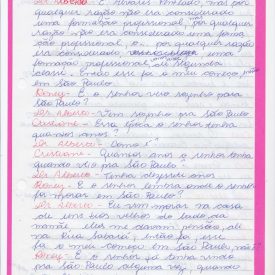 Sr. Alberto - É, Senares tomado, mas por
qualquer razão não era considerado
uma formação profissional, por qualquer
razão não era considerado uma forma
ção profissional, e... por qualquer razão
era considerado, uma
formação profissional, segunda
classe. Então esse foi o meu começo
em São Paulo.
Roney - E o senhor veio sozinho para
São Paulo?
Sr. Alberto - Vim sozinho pra São Paulo.
Cristiane - Essa época o senhor tinha
quantos anos?
Sr. Alberto - Como?
Cristiane - Quantos anos o senhor tinha
quando veio pra São Paulo?
Sr. Alberto - Tinha dezoito anos
Roney - E o senhor lembra onde o senhor
foi morar em São Paulo?
Sr. Alberto - Eu vim morar na casa
de uns tios velhos do lado da
mamãe. Eles me davam pensão, ali
na Rua Sabará, então foi esse
foi o meu começo em São Paulo, né?
Roney - E o senhor já tinha vindo
pra São Paulo alguma vez, quando